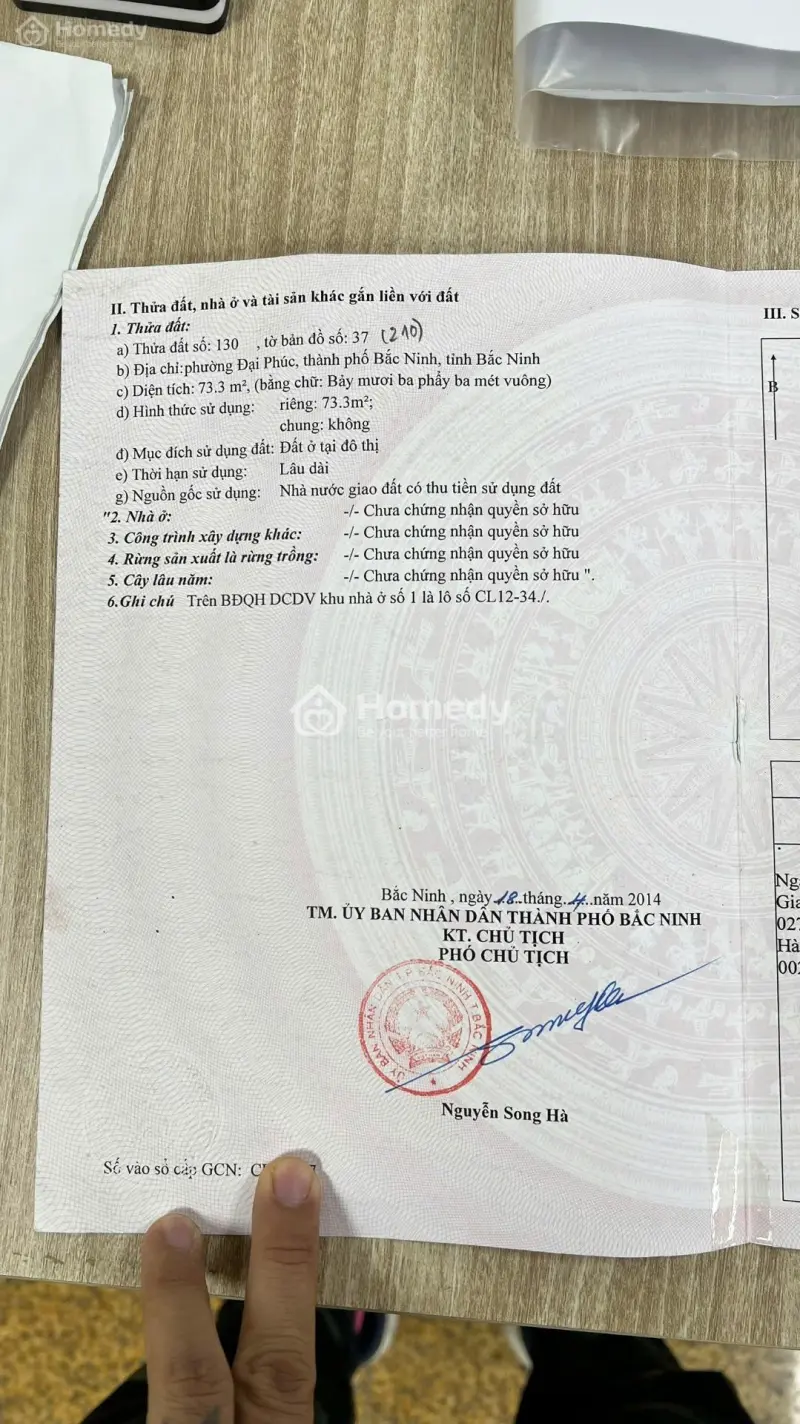 Homedy
II. Thửa đất, nhà ở và tài sản khác gắn liền với đất
1. Thửa đất:
a) Thửa đất số: 130 , tờ bản đồ số: 37 (210)
b) Địa chỉ:phường Đại Phúc, thành phố Bắc Ninh, tỉnh Bắc Ninh
c) Diện tích: 73.3 m², (bằng chữ: Bảy mươi ba phẩy ba mét vuông)
d) Hình thức sử dụng: riêng: 73.3m²;
chung: không
đ) Mục đích sử dụng đất: Đất ở tại đô thị
e) Thời hạn sử dụng: Lâu dài
g) Nguồn gốc sử dụng: Nhà nước giao đất có thu tiền sử dụng đất
"2. Nhà ở: -/- Chưa chứng nhận quyền sở hữu
3. Công trình xây dựng khác: -/- Chưa chứng nhận quyền sở hữu
4. Rừng sản xuất là rừng trồng: -/- Chưa chứng nhận quyền sở hữu
5. Cây lâu năm: -/- Chưa chứng nhận quyền sở hữu ".
6.Ghi chú Trên BĐQH DCDV khu nhà ở số 1 là lô số CL12-34./.
Homedy
Bắc Ninh , ngày 18 tháng 4 năm 2014
TM. ỦY BAN NHÂN DÂN THÀNH PHỐ BẮC NINH
KT. CHỦ TỊCH
PHÓ CHỦ TỊCH
ỦY BAN NHÂN DÂN T.P BẮC NINH T. BẮC NINH
Nguyễn Song Hà
Số vào sổ cấp GCN:
III. S
B
Ng
Gia
027
Hà
002